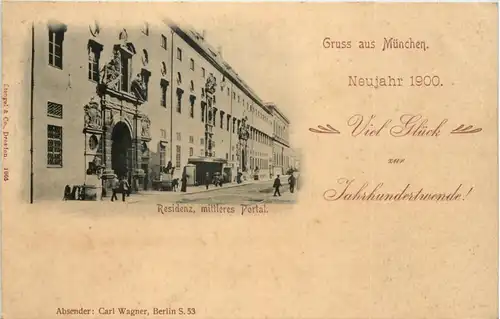 Gruss aus München.
Neujahr 1900.
Viel Glück
zur
Jahrhundertwende!
Residenz, mittleres Portal.
Stengel & Co., Dresden.
Absender: Carl Wagner, Berlin S. 53